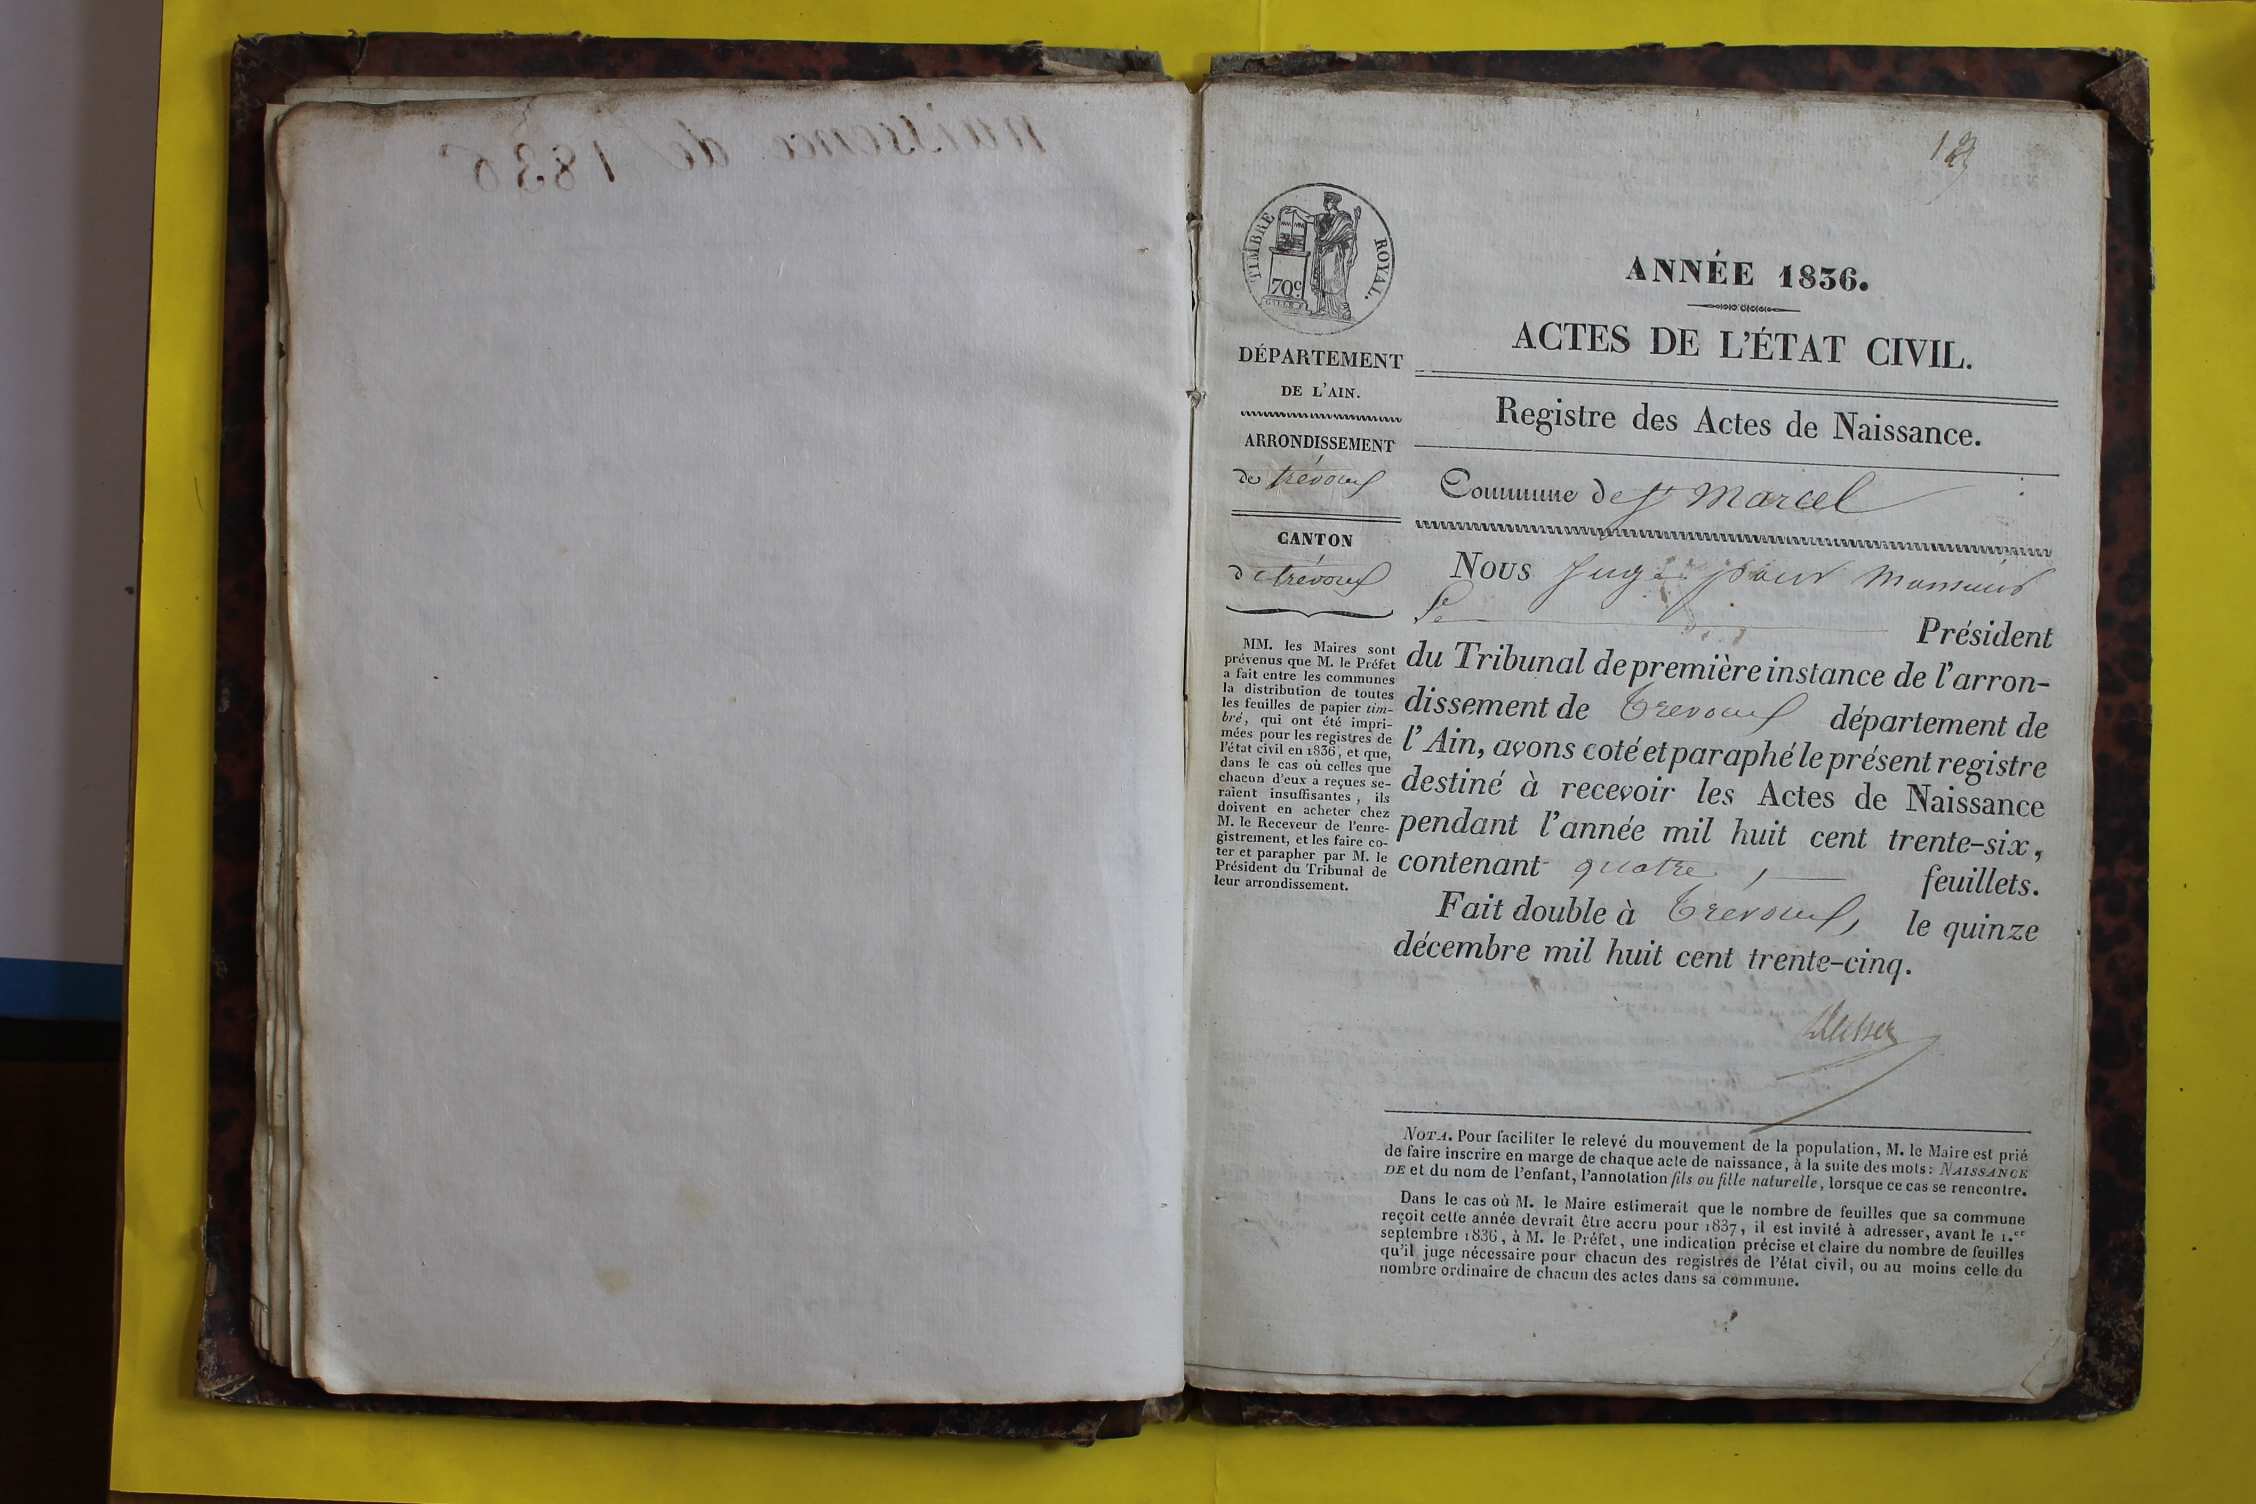 naissence de 1836
TIMBRE ROYAL.
70c
DÉPARTEMENT
DE L'AIN.
ARRONDISSEMENT
de trévoux
CANTON
de trévoux
MM. les Maires sont
prévenus que M. le Préfet
a fait entre les communes
la distribution de toutes
les feuilles de papier tim-
bré, qui ont été impri-
mées pour les registres de
l'état civil en 1836, et que,
dans le cas où celles que
chacun d'eux a reçues se-
raient insuffisantes, ils
doivent en acheter chez
M. le Receveur de l'enre-
gistrement, et les faire co-
ter et parapher par M. le
Président du Tribunal de
leur arrondissement.
ANNÉE 1836.
ACTES DE L'ÉTAT CIVIL.
Registre des Actes de Naissance.
Commune de St Marcel
Nous Juge pour monsieur
Le Président
du Tribunal de première instance de l'arron-
dissement de Trevoux département de
l'Ain, avons coté et paraphé le présent registre
destiné à recevoir les Actes de Naissance
pendant l'année mil huit cent trente-six,
contenant quatre, feuillets.
Fait double à Trevoux, le quinze
décembre mil huit cent trente-cinq.
NOTA. Pour faciliter le relevé du mouvement de la population, M. le Maire est prié
de faire inscrire en marge de chaque acte de naissance, à la suite des mots: NAISSANCE
DE et du nom de l'enfant, l'annotation fils ou fille naturelle, lorsque ce cas se rencontre.
Dans le cas où M. le Maire estimerait que le nombre de feuilles que sa commune
reçoit cette année devrait être accru pour 1837, il est invité à adresser, avant le 1.er
septembre 1836, à M. le Préfet, une indication précise et claire du nombre de feuilles
qu'il juge nécessaire pour chacun des registres de l'état civil, ou au moins celle du
nombre ordinaire de chacun des actes dans sa commune.